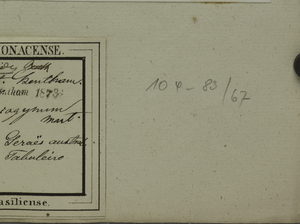 ONACENSE.
Bentham.
ntham 1873.
ogynum
mart.
Geraës austral.
Taboleiro
asiliense.
10 φ - 83/67